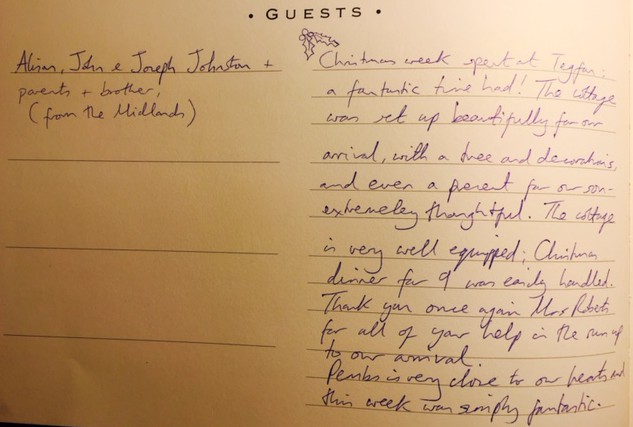 • GUESTS •
Alison, John & Joseph Johnston +
parents + brother,
(from the Midlands)
Christmas week spent at Tegfan:
a fantastic time had! The cottage
was set up beautifully for our
arrival, with a tree and decorations,
and even a present for our son-
extremeley thoughtful. The cottage
is very well equipped; Christmas
dinner for 9 was easily handled.
Thank you once again Mrs Roberts
for all of your help in the run up
to our arrival.
Pembs is very close to our hearts and
this week was simply fantastic.